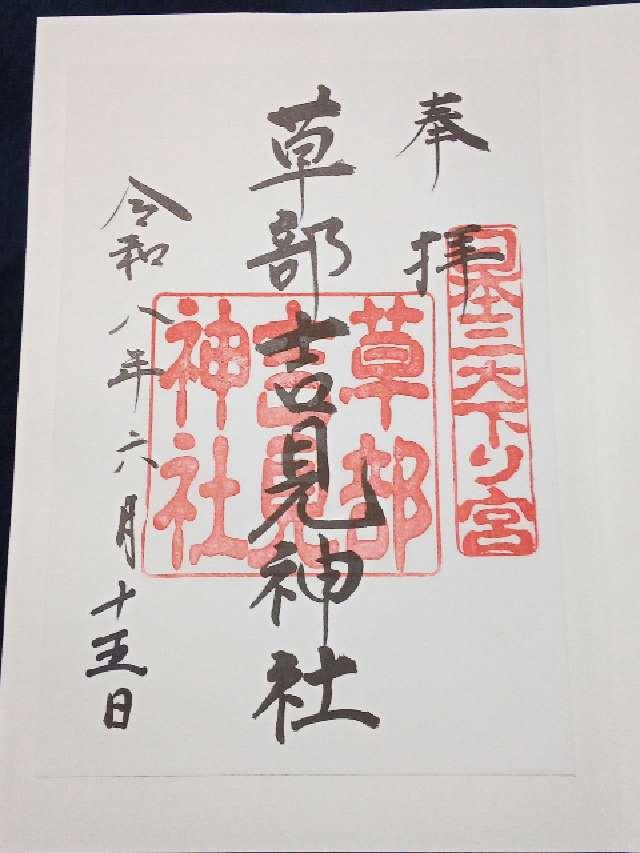 奉拝
日本三大下り宮
草部吉見神社
草部
吉見
神社
令和八年六月十五日